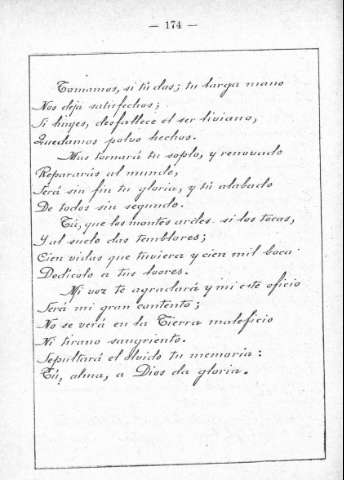 — 174 —
Tomamos, si tú das; tu larga mano
Nos deja satisfechos;
Si huyes, desfallece el ser liviano,
Quedamos polvo hechos.
Mas tornará tu soplo, y renovado
Repararás al mundo,
Será sin fin tu gloria, y tú alabado
De todos sin segundo.
Tú, que los montes ardes si los tocas,
Y al suelo das temblores;
Cien vidas que tuviera y cien mil bocas
Dedicolo á tus loores.
Mi voz te agradará y mi este oficio
Será mi gran contento;
No se verá en la Tierra maleficio
Ni tirano sangriento.
Sepultará el olvido tu memoria:
Tú, alma, a Dios da gloria.